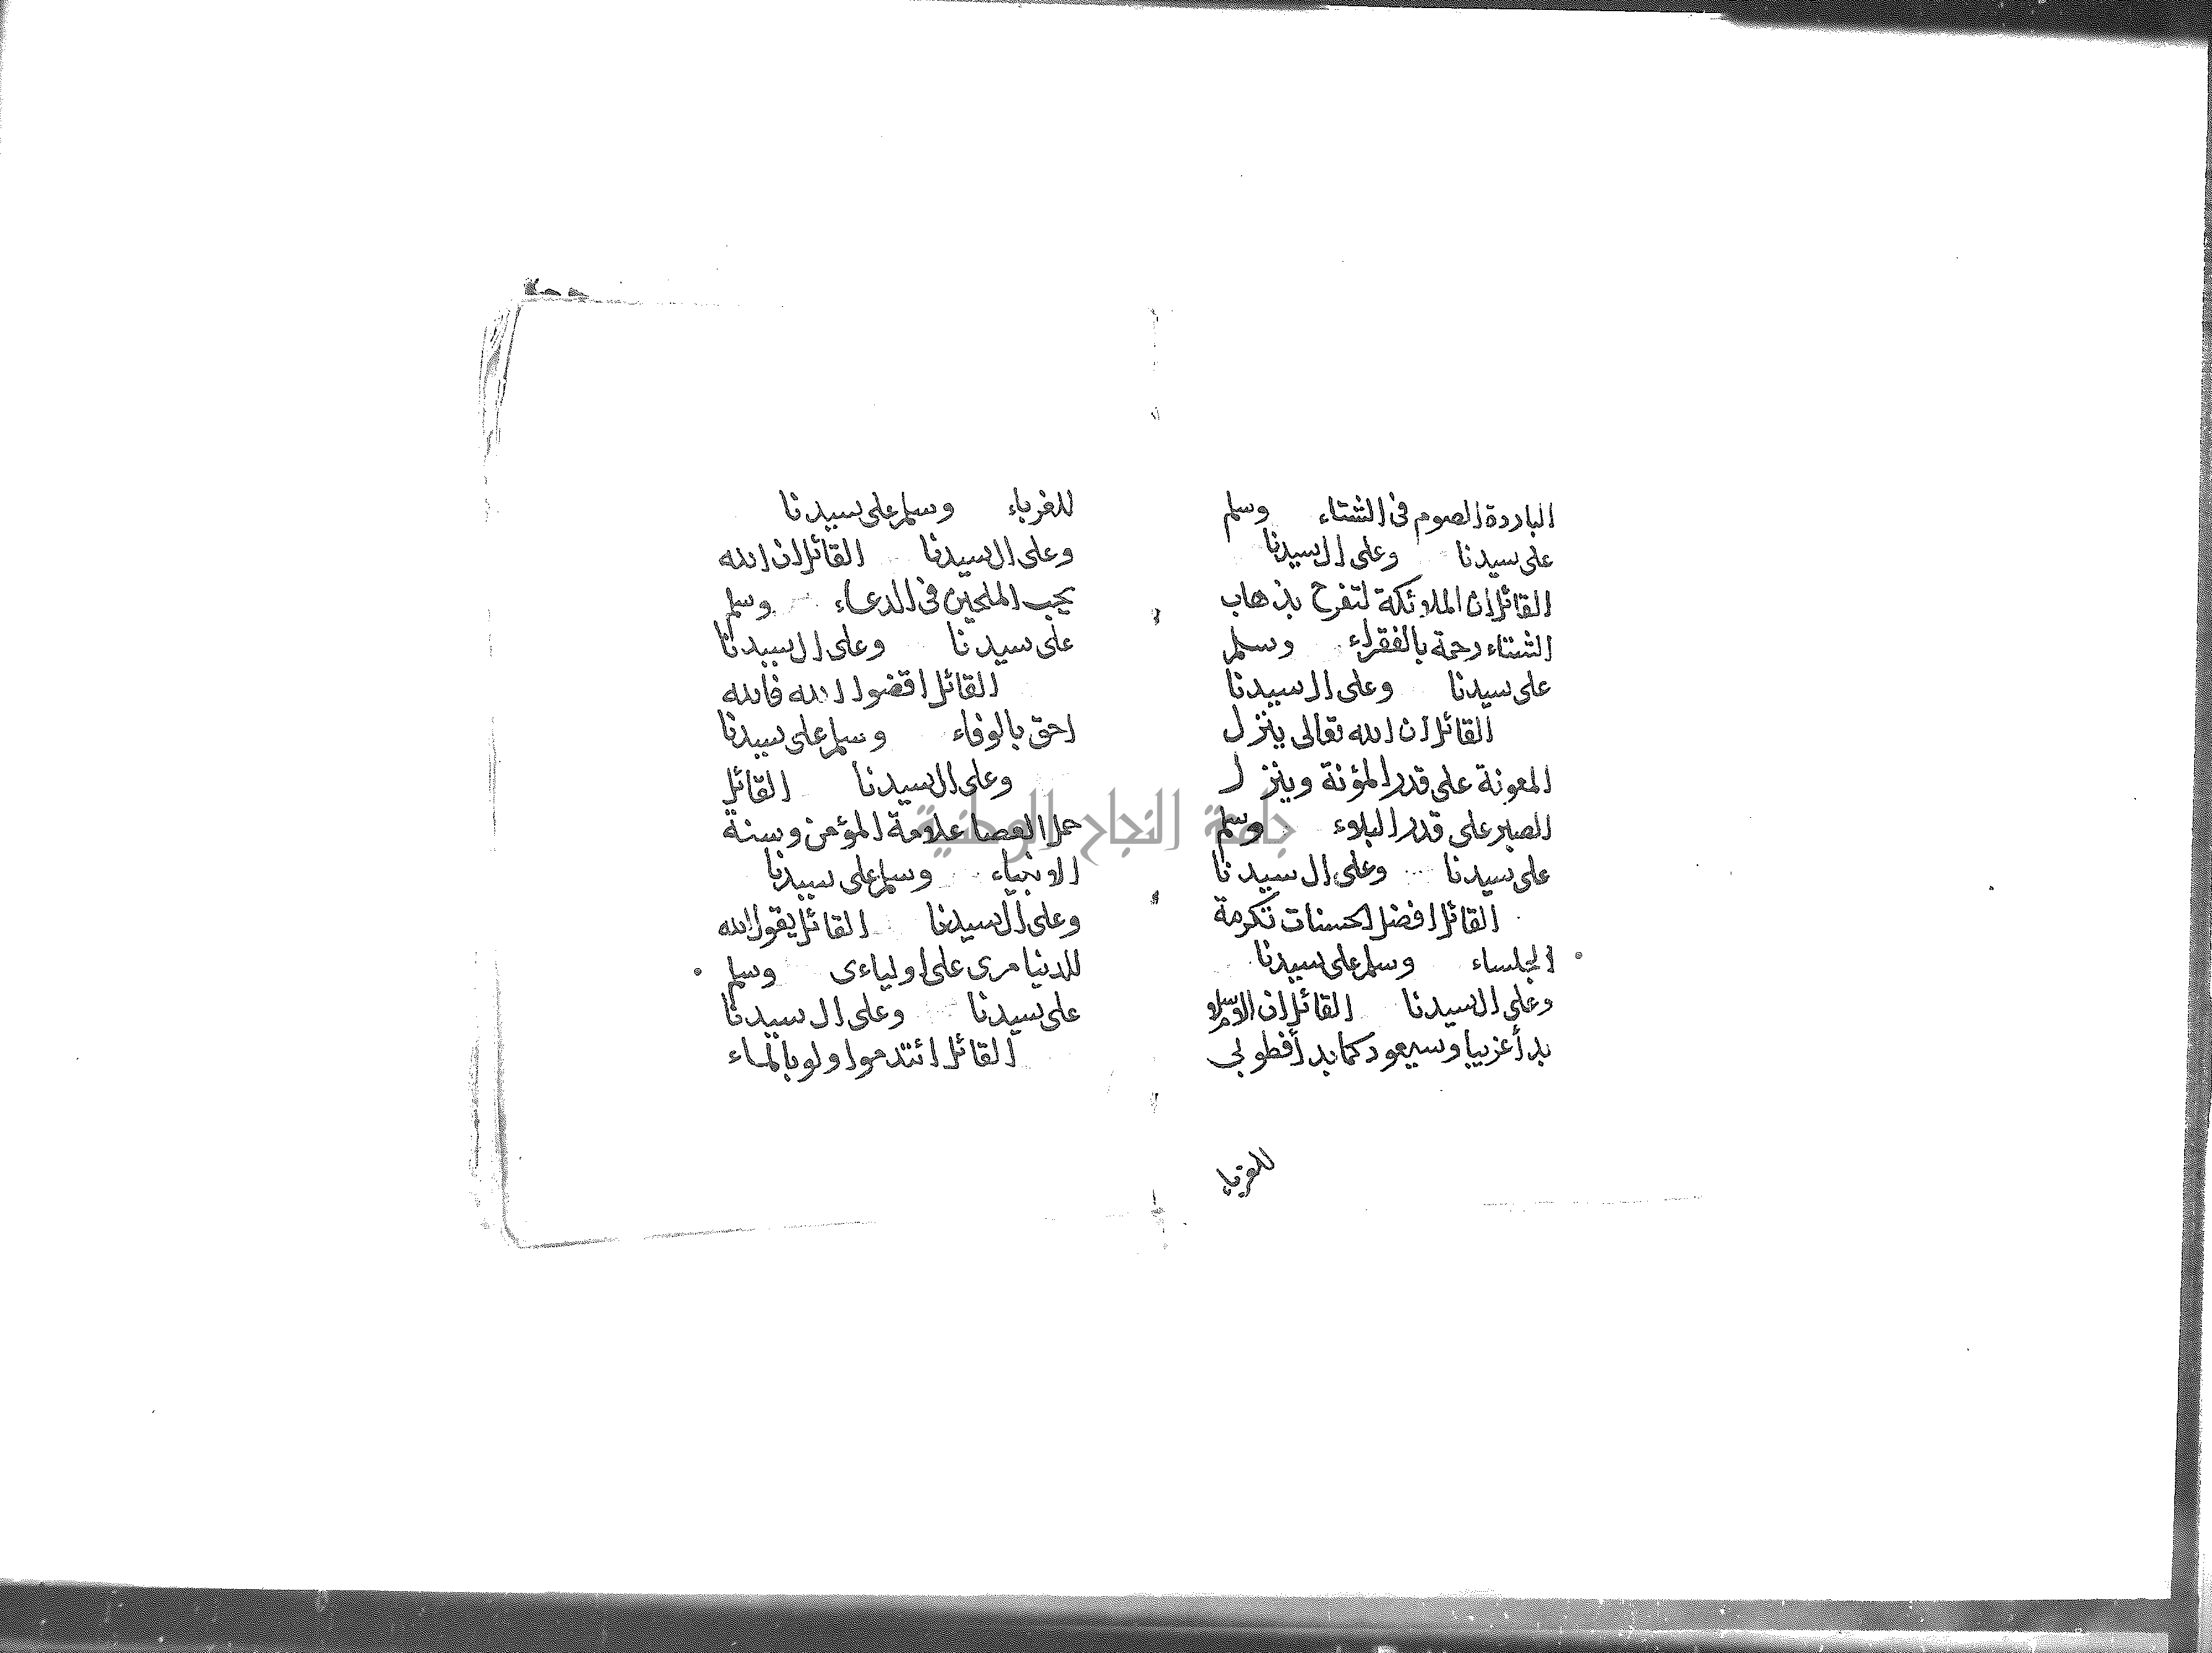 الباردة الصوم فى الشتاء وسلم
على سيدنا وعلى ال سيدنا
القائل ان الملائكة لتفرح بذهاب
الشتاء رحمة بالفقراء وسلم
على سيدنا وعلى ال سيدنا
القائل ان الله تعالى ينزل
المعونة على قدر المؤنة وينزل
الصبر على قدر البلاء وسلم
على سيدنا وعلى ال سيدنا
القائل افضل الحسنات تكرمة
الجلساء وسلم على سيدنا
وعلى ال سيدنا القائل ان الاسلام
بدأ غريبا وسيعود كما بدأ فطوبى
للغربا
للغرباء وسلم على سيدنا
وعلى ال سيدنا القائل ان الله
يحب الملحين فى الدعاء وسلم
على سيدنا وعلى ال سيدنا
القائل اقضوا الله فالله
احق بالوفاء وسلم على سيدنا
وعلى ال سيدنا القائل
حمل العصا علامة المؤمن وسنة
الانبياء وسلم على سيدنا
وعلى ال سيدنا القائل يقول الله
للدنيا مرى على اولياءى وسلم
على سيدنا وعلى ال سيدنا
القائل ائتدموا ولو بالماء
جامعة النجاح الوطنية